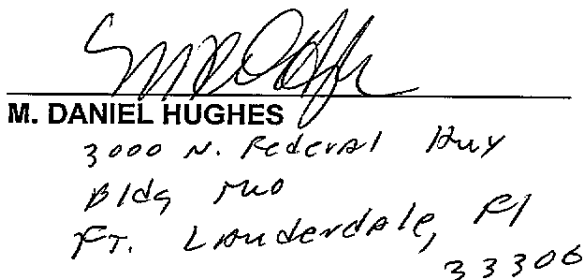 M. DANIEL HUGHES
3000 N. Federal Hwy
Bldg Two
FT. Lauderdale, Fl
33306